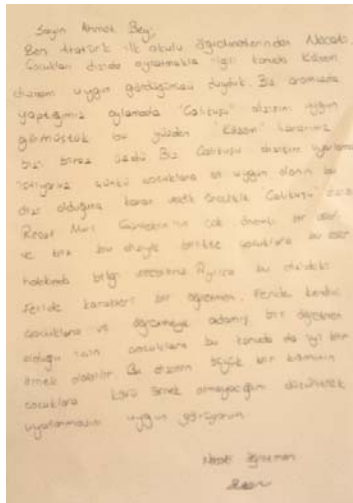 Sayın Ahmet Bey;
Ben Atatürk ilk okulu öğretmenlerinden Necati.
Çocukları dizide oynatmakla ilgili konuda
dizisini uygun gördüğünüzü duyduk. Biz aramızda
yaptığımız oylamada "Çalıkuşu" dizisini uygun
görmüştük bu yüzden kararınız
bizi biraz üzdü. Biz Çalıkuşu dizisini uyarlama
istiyoruz çünkü çocuklara en uygun olanın bu
dizi olduğuna karar verdik. Öncelikle Çalıkuşu
Reşat Nuri Güntekin'in çok önemli bir eseri
ve biz bu diziyle birlikte çocuklara bu eser
hakkında bilgi Ayrıca bu dizideki
Feride karakteri bir öğretmen. Feride kendini
çocuklara ve öğretmeye adamış bir öğretmen
olduğu için çocuklara bu konuda da iyi bir
örnek olabilir. Bu dizinin büyük bir kısmının
çocuklara kötü örnek olmayacağını düşünerek
uyarlanmasını uygun görüyorum.
Necati Öğretmen